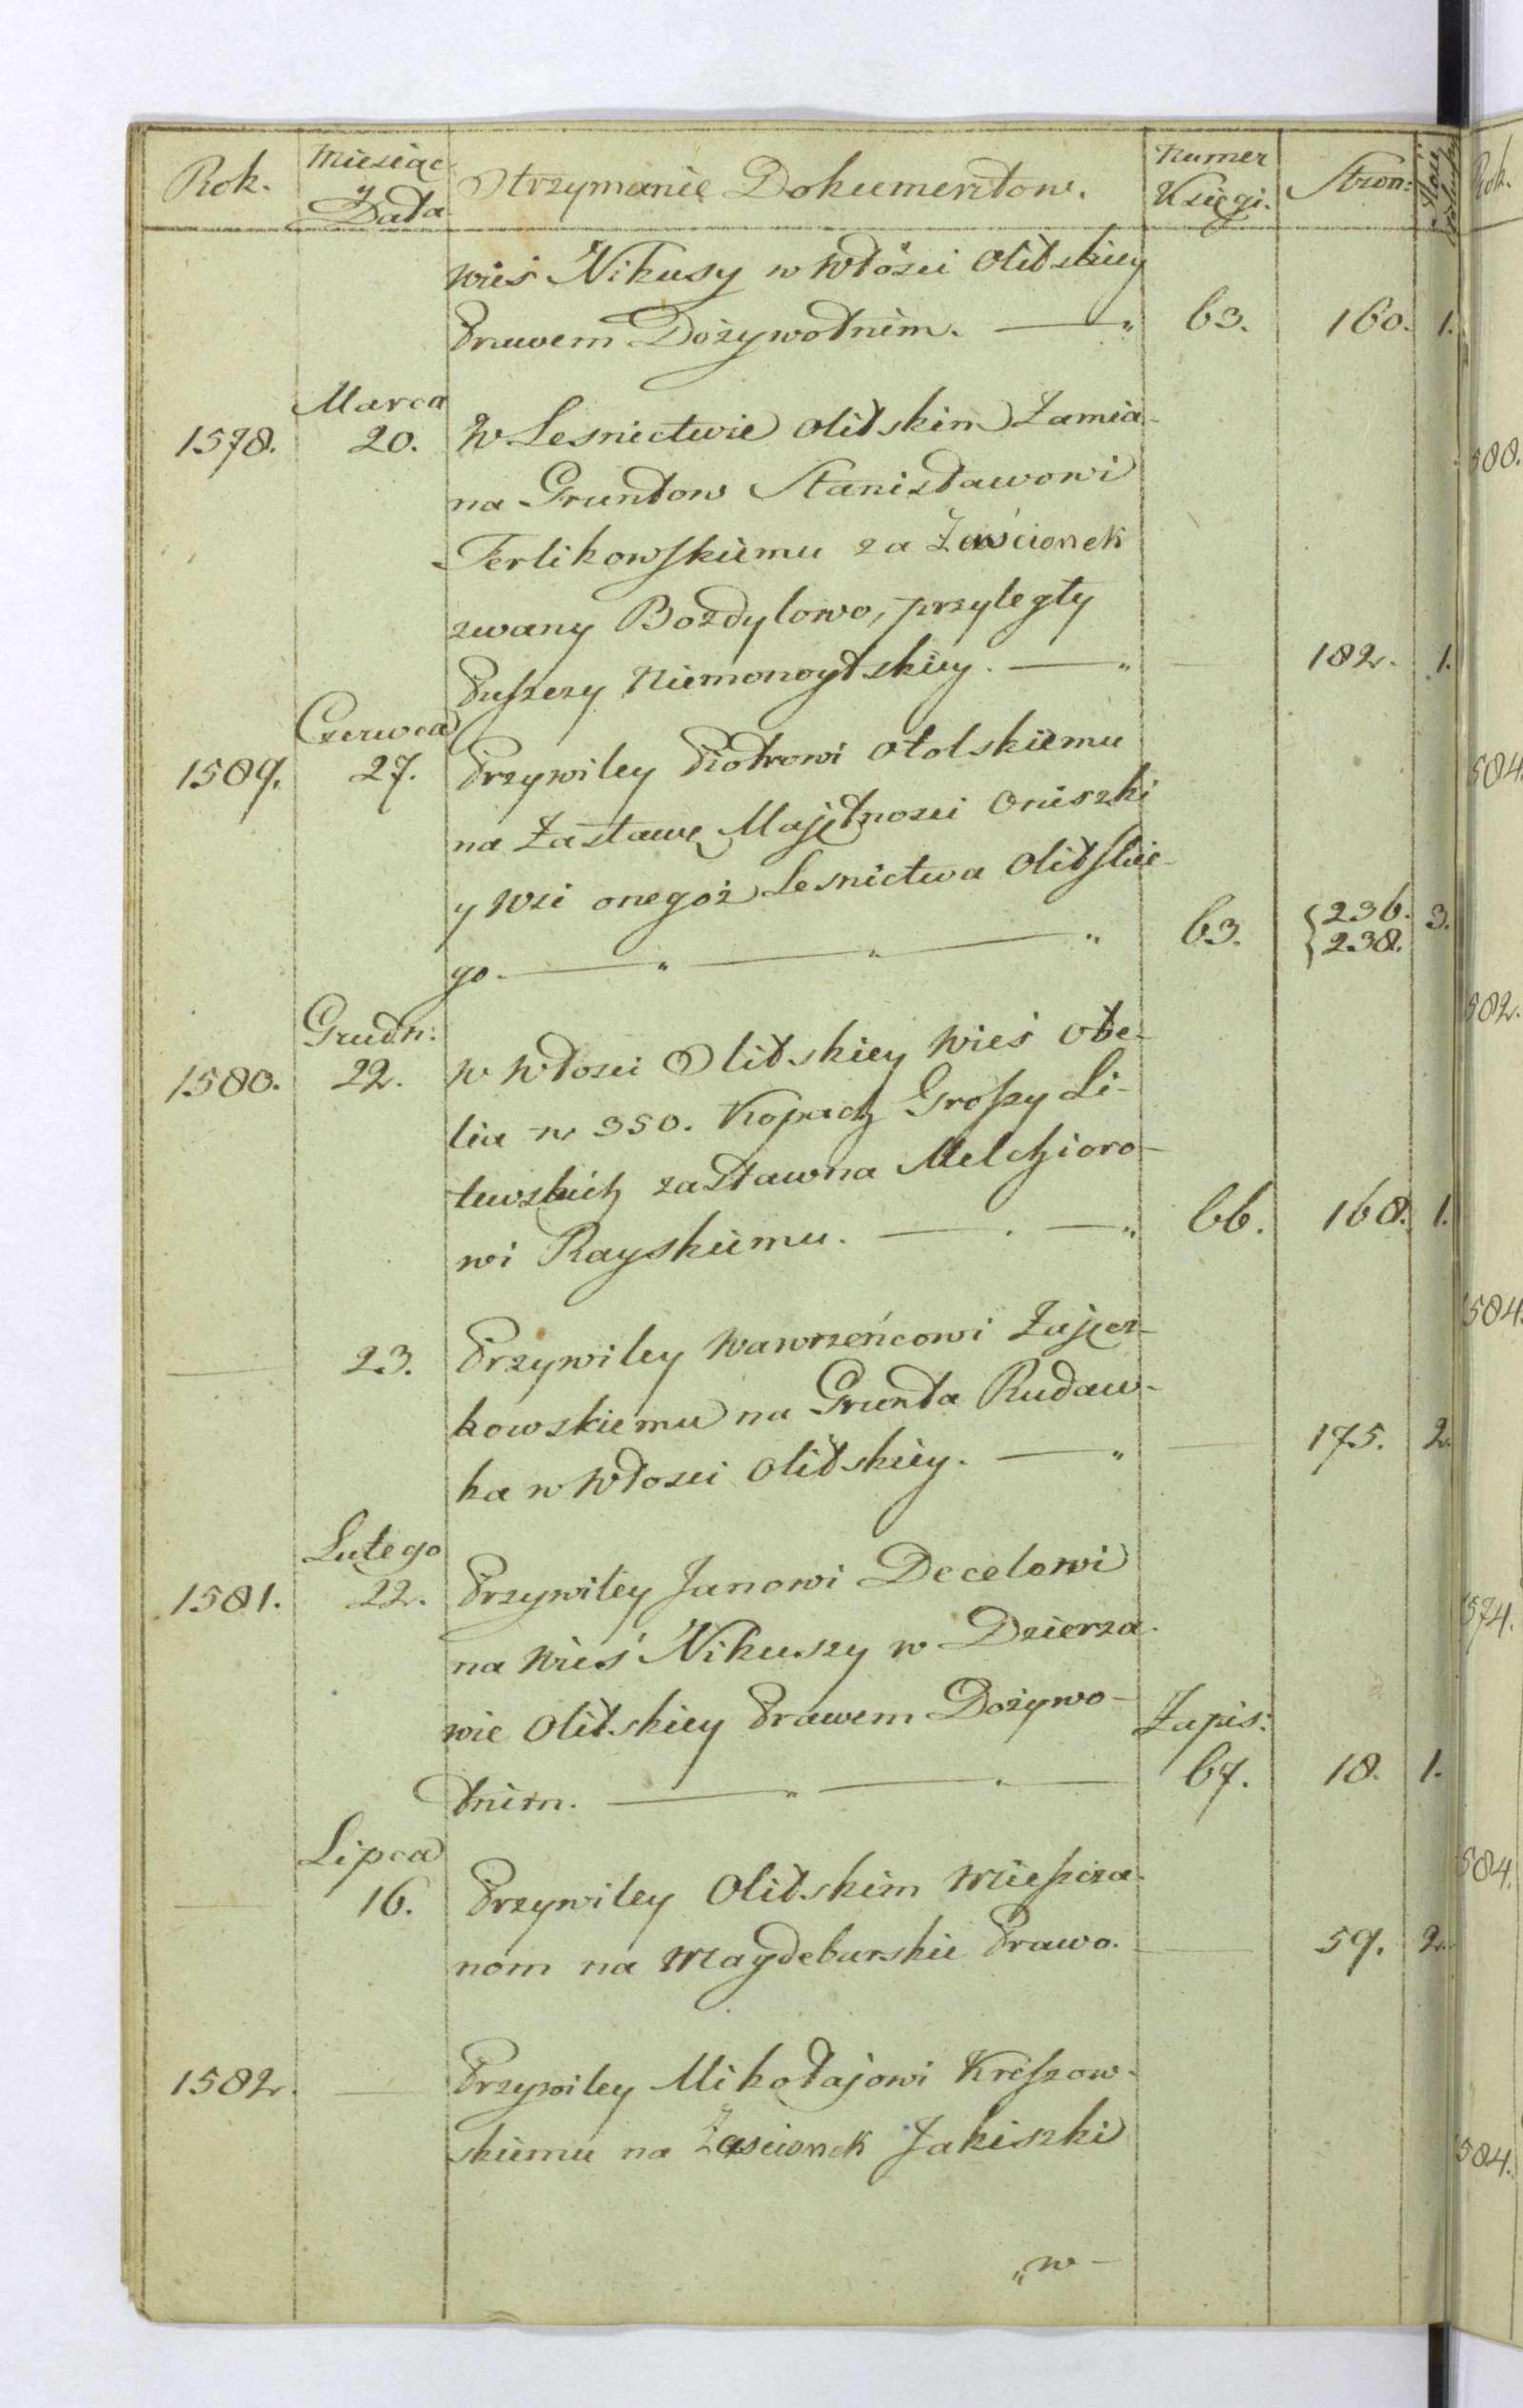 Rok. Miesiąc Otrzymanie Dokumentow. Numer Stron:
y Data Księgi.
Wieś Nikusy w Włości Olitskiey
Prawem Dożywotnim. — „ 63. 160. 1.
Marca
1578. 20. W Lesnictwie Olitskim Zamia-
na Gruntow Stanisławowi
Terlikowskiemu za Zaścionek
zwany Bozdylowo, przyległy
Puszczy Niemonoytskiey. — „ — 182. 1.
Czerwca
1589. 27. Przywiley Piotrowi Otolskiemu
na Zastawę Majętnosci Oniszki
y Wsi onegoż Lesnictwa Olitskie-
go. — „ — „ — „ 63. {236. 238. 3.
Grudn:
1580. 22. W Włosci Olitskiey Wieś Obe-
lia w 350. Kopach Groszy Li-
tewskich zastawna Melchioro-
wi Rayskiemu. — . — „ 66. 168. 1.
— 23. Przywiley Wawrzeńcowi Zajęcz-
kowskiemu na Grunta Rudaw-
ka w Włosci Olitskiey. — „ — 175. 2.
Lutego
1581. 22. Przywiley Janowi Decelowi
na Wieś Nikuszy w Dzierża-
wie Olitskiey Prawem Dożywo- Zapis:
tnim. — „ — „ — 67. 18. 1.
Lipca
— 16. Przywiley Olitskim Mieszcza-
nom na Magdeburskie Prawo. — 59. 2.
1582. — Przywiley Mikołajowi Kreszow-
skiemu na Zascionek Jakiszki
„w —